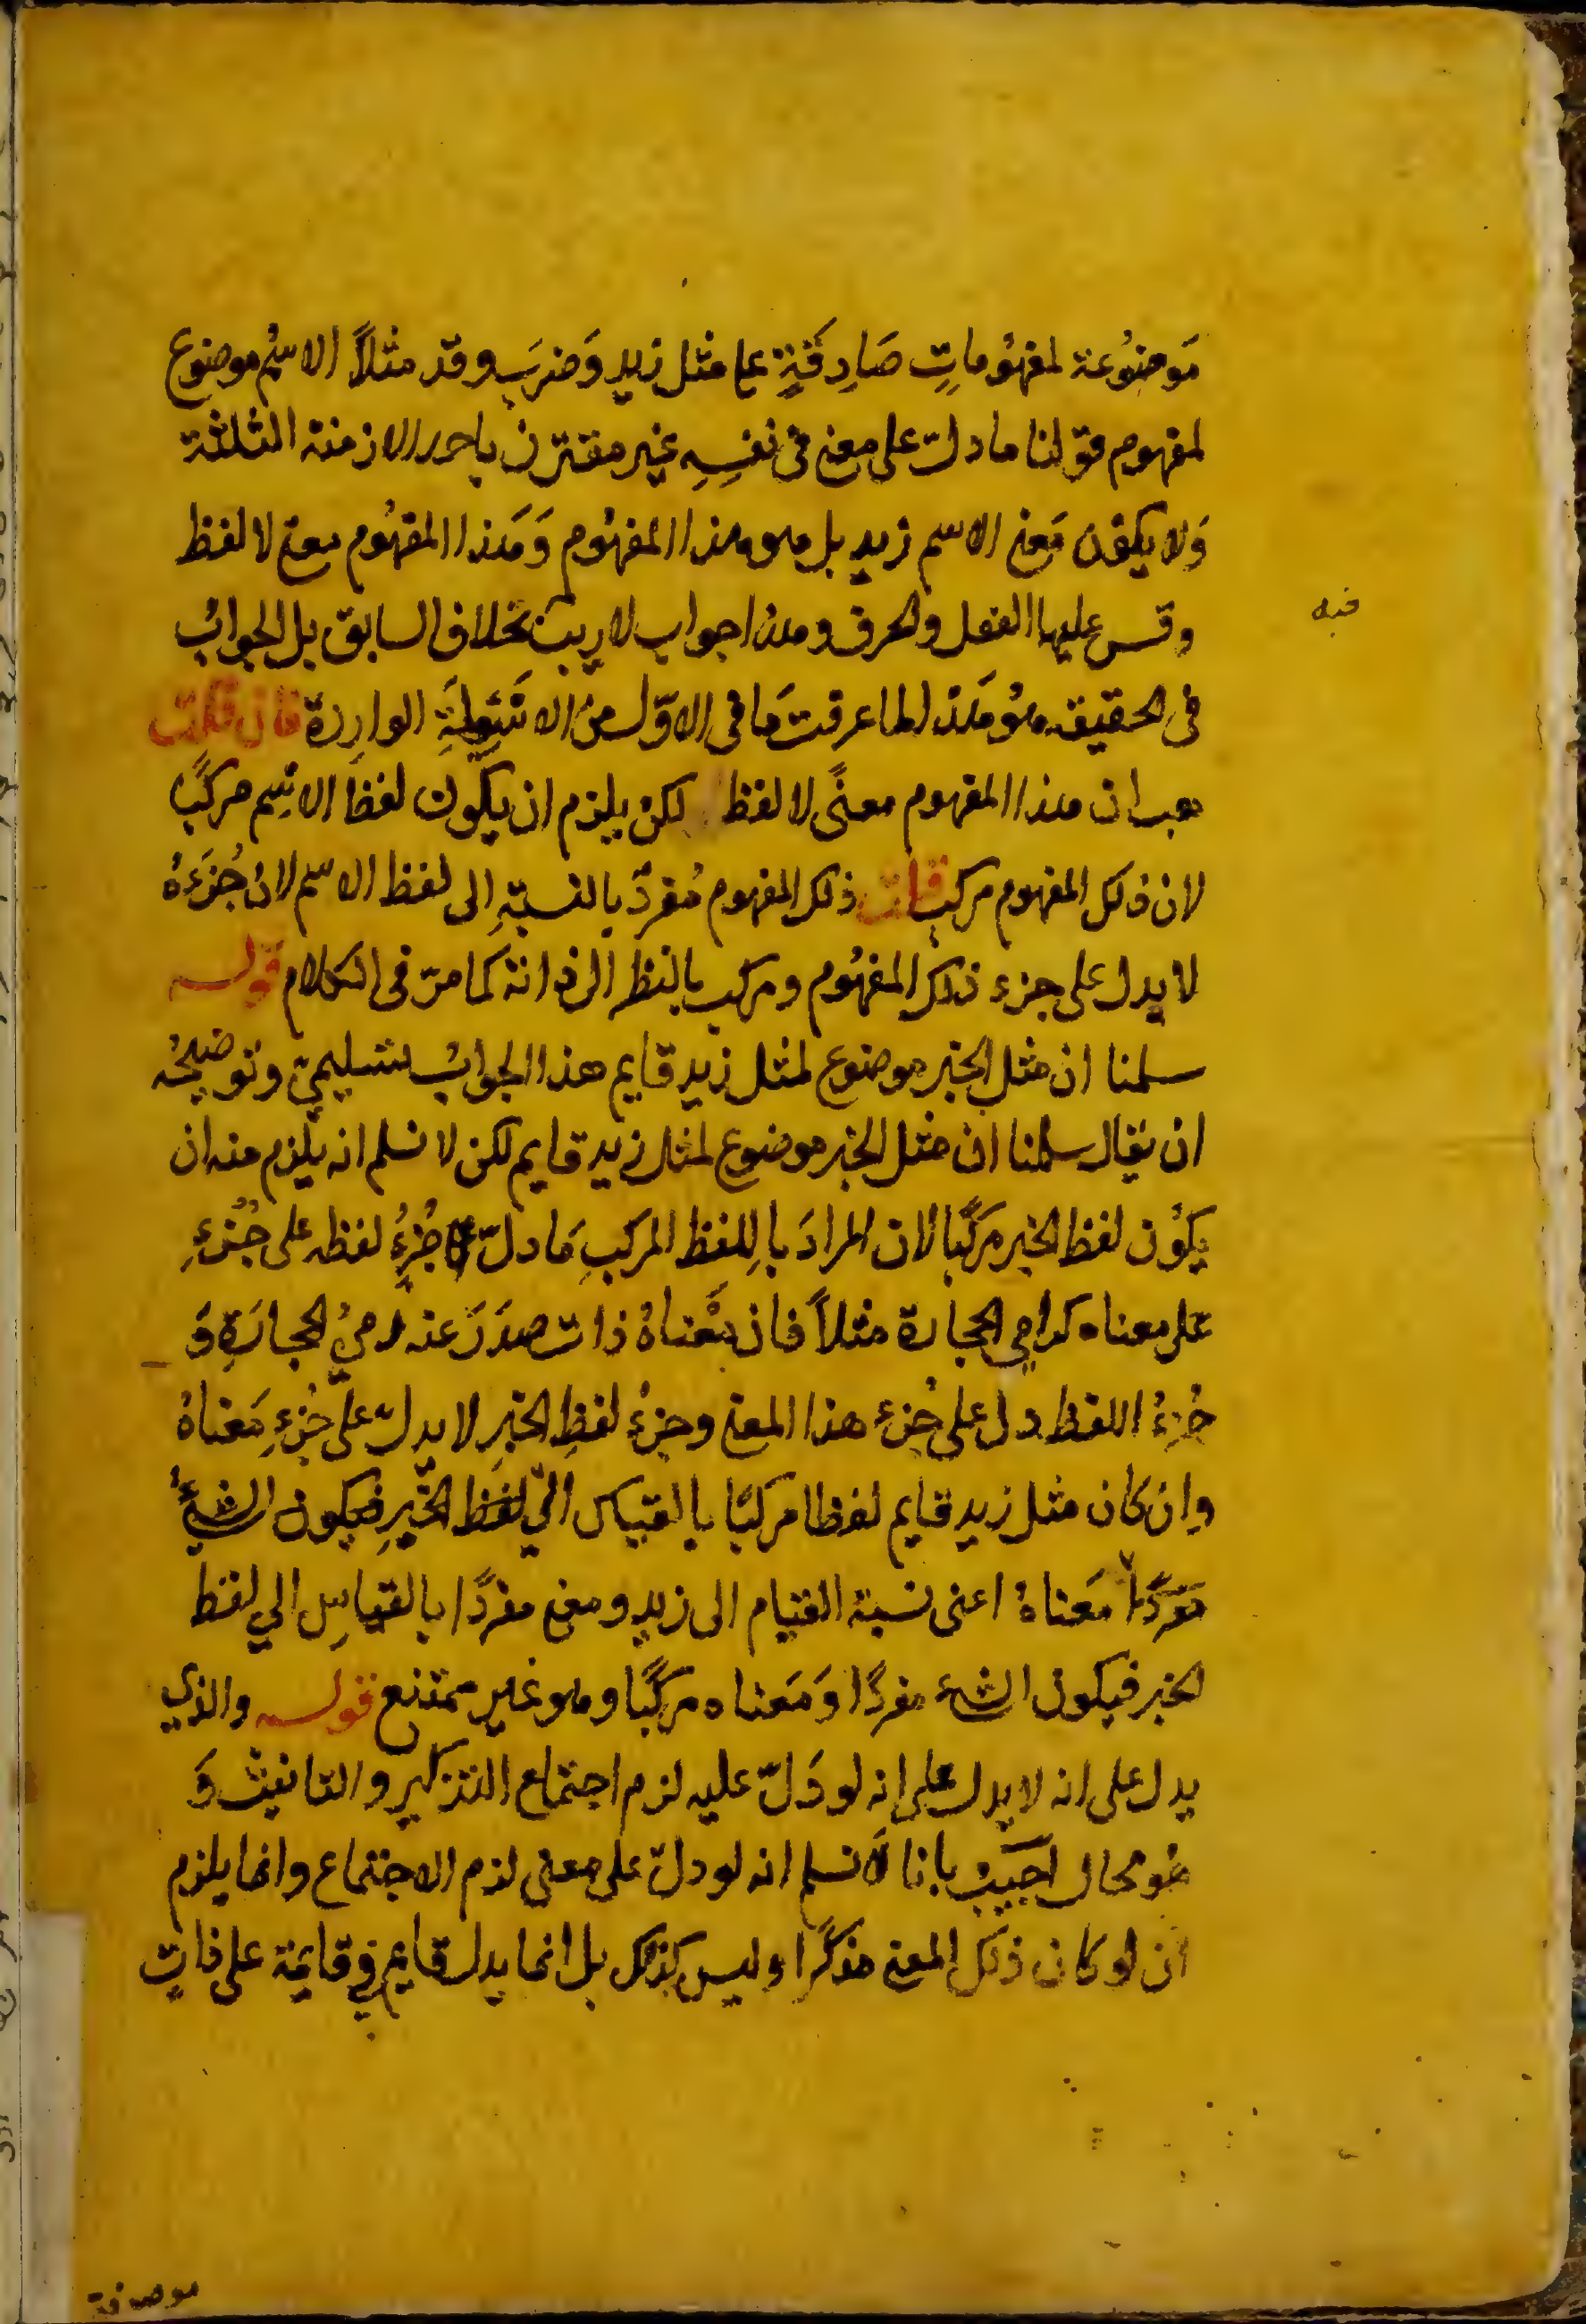 مَوضُوعة لمفهُوماتٍ صَادِقَةٍ على مثل زيد وَضرَبَ وقد مثلاً الاسْمُ موضوع
لمفهوم قولنا ما دلّ على معنى فى نفسِهِ غير مقترن باحد الازمنة الثلثة
وَلا يكون مَعنى الاسم زيد بل هو هذا المفهُوم وَهَذا المفهُوم معنى لا لفظ
وقس عليها الفعل والحرف وهذا جواب لا ريبَ فيه بخلاف السابق بل الجوابُ
فى الحقيقة هُو هَذا لما عرفتَ مَا فى الاوّل من الاسْئِولَةِ الوارِدة فان قلت
هب ان هذا المفهوم معنًى لا لفظ لكن يلزم ان يكون لفظ الاسِم مركبًا
لان ذلك المفهوم مركب قلت ذلك المفهوم مُفردٌ بالنسبةِ الى لفظ الاسم لانُ جُزءَهُ
لا يدل على جزء ذلك المفهُوم ومركب بالنظر الى ذاته كما مرّ فى الكلام قوله
سلمنا ان مثل الخبر موضوع لمثل زيد قايم هذا الجوابُ تسليميّ وتوضيحُه
ان يقال سلمنا انّ مثل الخبر موضوع لمثل زيد قايم لكن لا نسلم انه يلزم منه ان
يكوُن لفظ الخبر مركّبًا لان المرادَ باللفظ المركبِ مَا دلّ جُزءُ لفظه على جُزءِ
على معناه كرامى الحجارة مثلاً فان مَعْناهُ ذات صدَرَ عنه رميُ الحجارَةِ وَ
جُزءُ اللفظ دل على جُزء هذا المعنى وجزءُ لفظِ الخبرِ لا يدلّ على جُزءِ مَعناهُ
وان كان مثل زيد قايم لفظا مركبًا بالقياس الى لفظ الخبرِ فيكون الشئُ
مفردًا مَعناهُ اعنى نسبة القيام الى زيد ومعنى مفردًا بالقياسِ الي لفظ
الخبر فيكون الشئ مفردًا وَمَعناه مركّبًا وهو غير ممتنع قوله والذي
يدل على انه لا يدل على انه لو دَلّ عليه لزم اجتماع التذكير والتانيث وَ
هُو محال اجيبَ بانا لاَ نسلم انه لو دلّ على معنى لزم الاجتماع وانما يلزم
ان لو كان ذلك المعنى مذكّرًا وليس كذلك بل انما يدل قايم فى قايمة على ذاتٍ
فيه
موصوفة